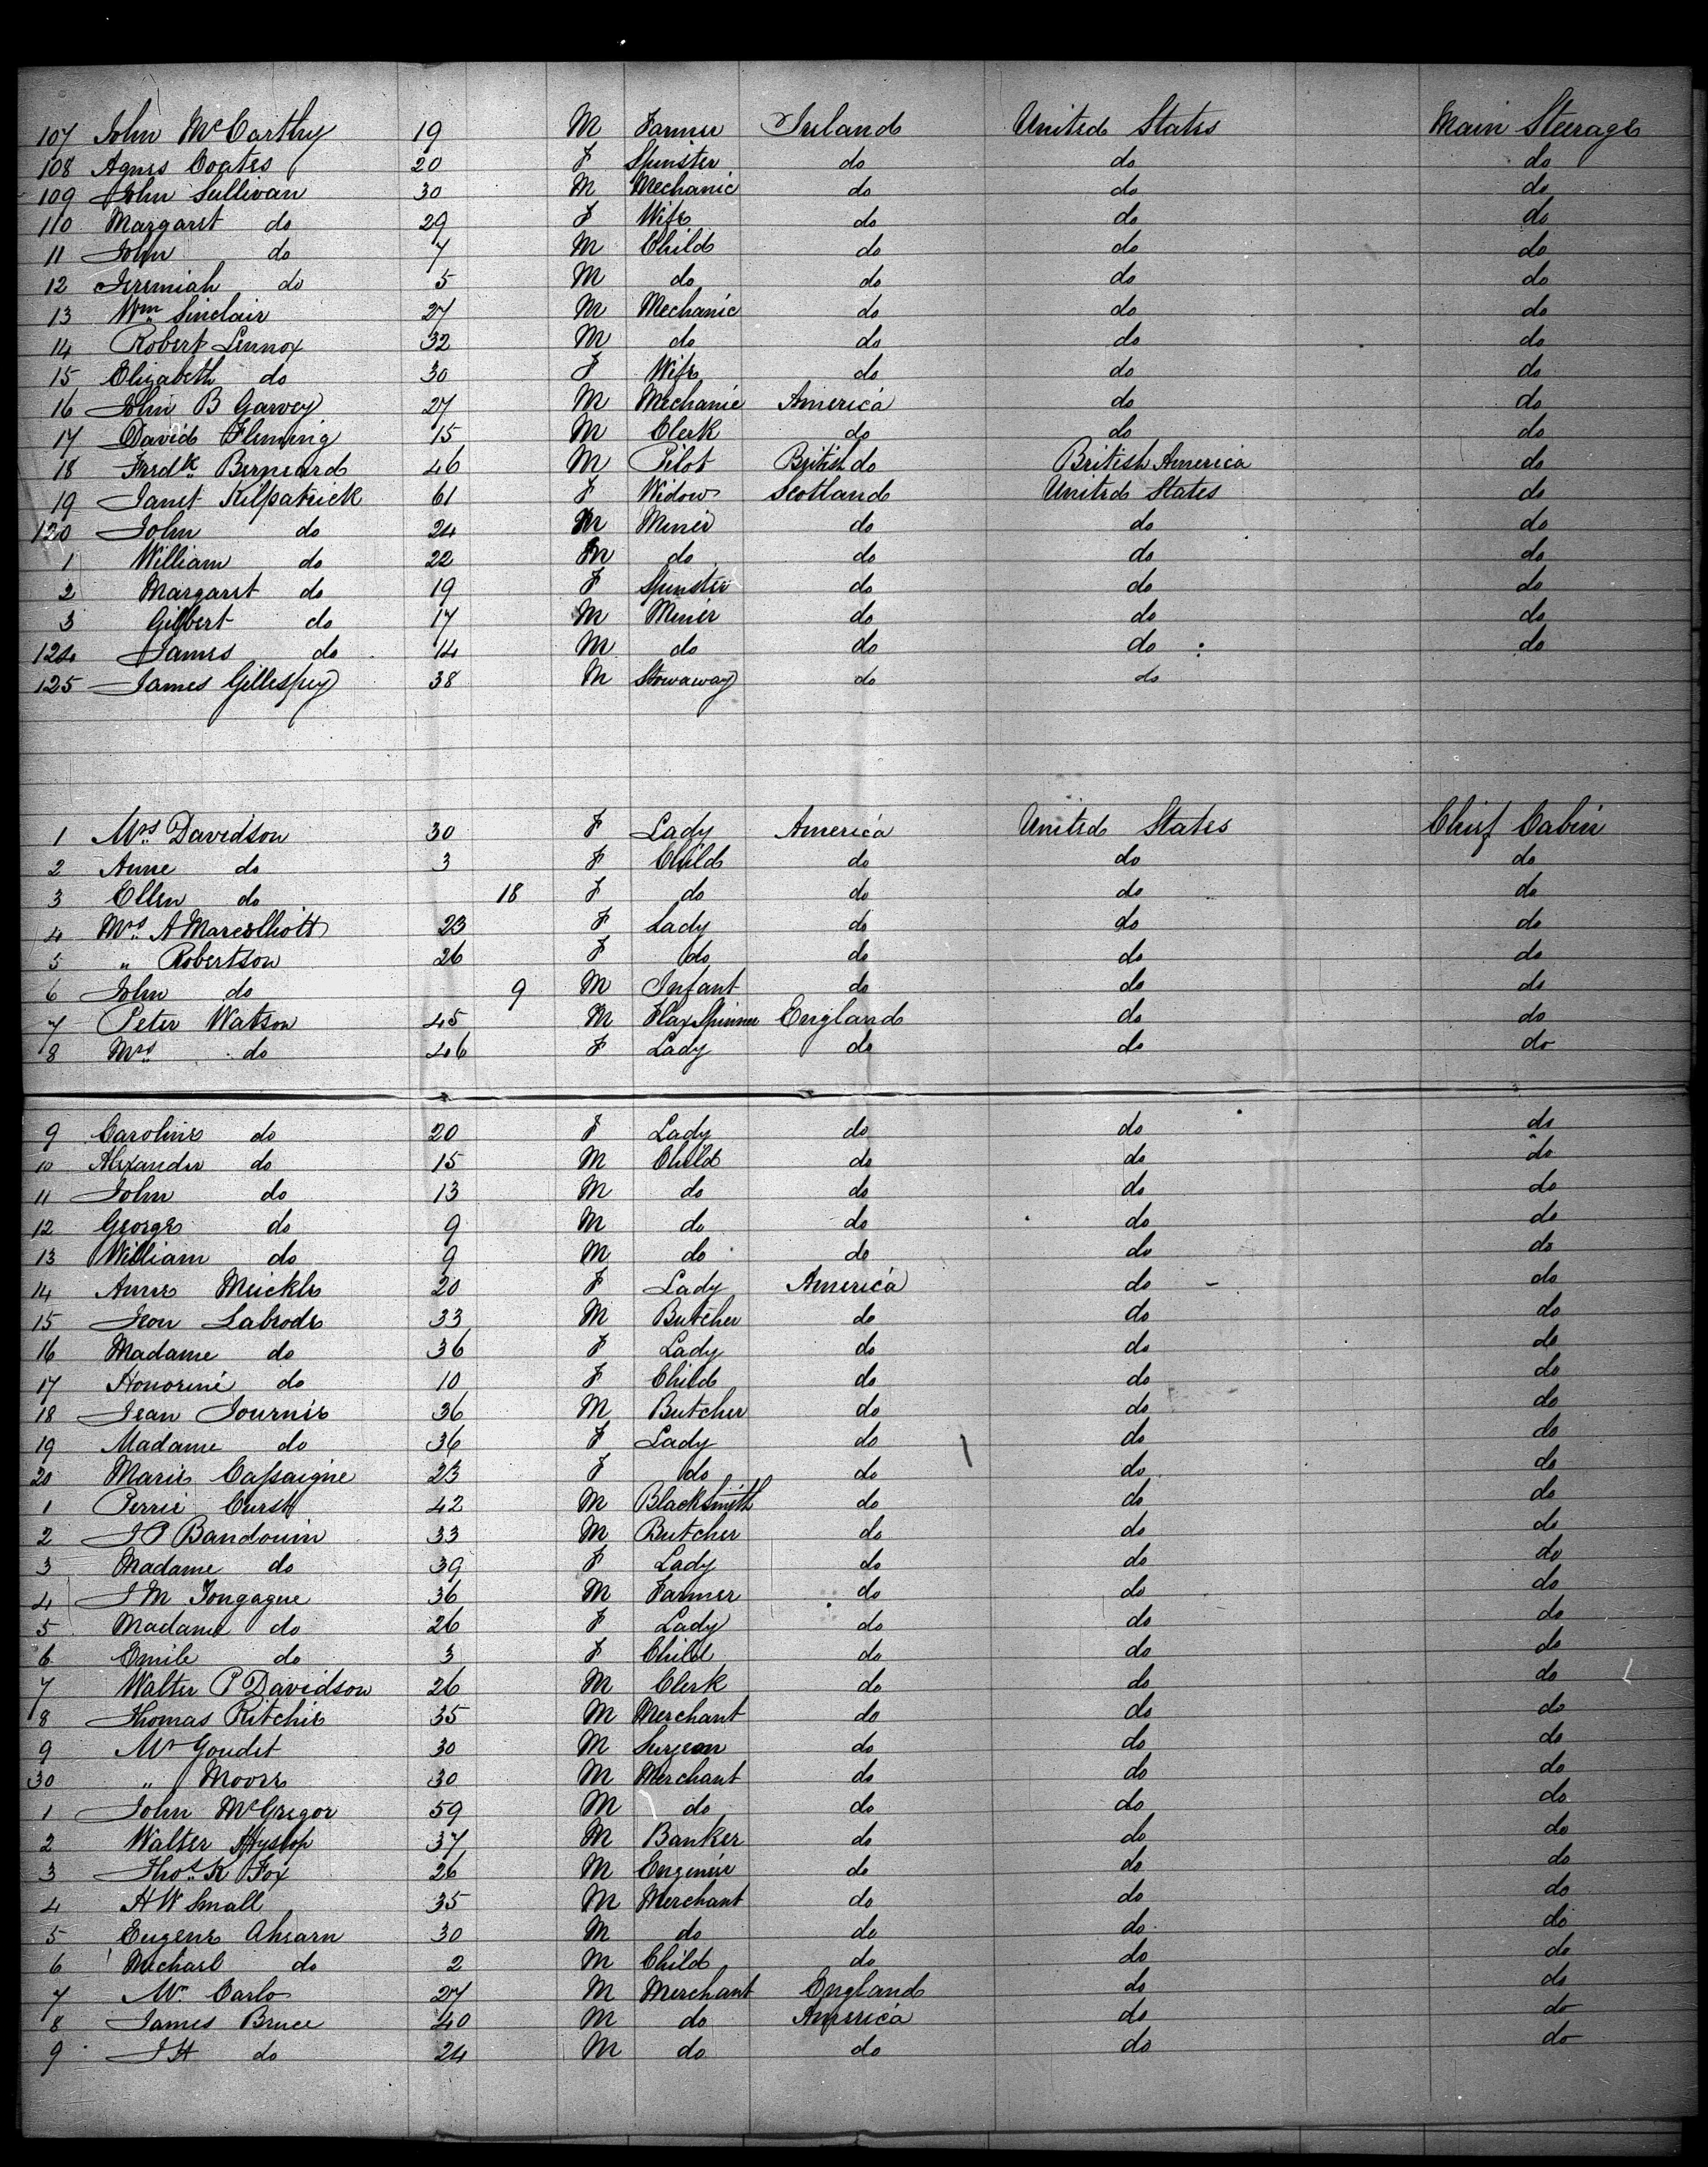 107 John McCarthy 19 M Farmer Ireland United States Main Steerage
108 Agnes Coates 20 F Spinster do do do
109 John Sullivan 30 M Mechanic do do do
110 Margaret do 29 F Wife do do do
11 John do 7 M Child do do do
12 Jeremiah do 5 M do do do do
13 Wm Sinclair 27 M Mechanic do do do
14 Robert Lennox 32 M do do do do
15 Elizabeth do 30 F Wife do do do
16 John B Garvey 27 M Mechanic America do do
17 David Fleming 15 M Clerk do do do
18 Fredk Berneard 46 M Pilot British do British America do
19 Janet Kilpatrick 61 F Widow Scotland United States do
120 John do 24 M Miner do do do
1 William do 22 M do do do do
2 Margaret do 19 F Spinster do do do
3 Gilbert do 17 M Miner do do do
124 James do 14 M do do do do
125 James Gillespey 38 M Stowaway do do
1 Mrs Davidson 30 F Lady America United States Chief Cabin
2 Anne do 3 F Child do do do
3 Ellen do 18 F do do do do
4 Mrs A Marcolliott 23 F Lady do do do
5 " Robertson 26 F do do do do
6 John do 9 M Infant do do do
7 Peter Watson 45 M Flax Spinner England do do
8 Mrs do 46 F Lady do do do
9 Caroline do 20 F Lady do do do
10 Alexander do 15 M Child do do do
11 John do 13 M do do do do
12 George do 9 M do do do do
13 William do 9 M do do do do
14 Annie Meickle 20 F Lady America do do
15 Jean Labrode 33 M Butcher do do do
16 Madame do 36 F Lady do do do
17 Honorine do 10 F Child do do do
18 Jean Journie 36 M Butcher do do do
19 Madame do 36 F Lady do do do
20 Marie Cassaigne 23 F do do do do
1 Perrie Curst 42 M Blacksmith do do do
2 J P Bandouin 33 M Butcher do do do
3 Madame do 39 F Lady do do do
4 J M Tongague 36 M Farmer do do do
5 Madame do 26 F Lady do do do
6 Emile do 3 F Child do do do
7 Walter P Davidson 26 M Clerk do do do
8 Thomas Ritchie 35 M Merchant do do do
9 Mr Goudet 30 M Surgeon do do do
30 " Moore 30 M Merchant do do do
1 John McGregor 59 M do do do do
2 Walter Hyslop 37 M Banker do do do
3 Thos K Fox 26 M Engenier do do do
4 H W Small 35 M Merchant do do do
5 Eugene Ahearn 30 M do do do do
6 Michael do 2 M Child do do do
7 Mr Carlo 27 M Merchant England do do
8 James Bruce 40 M do America do do
9 J H do 24 M do do do do